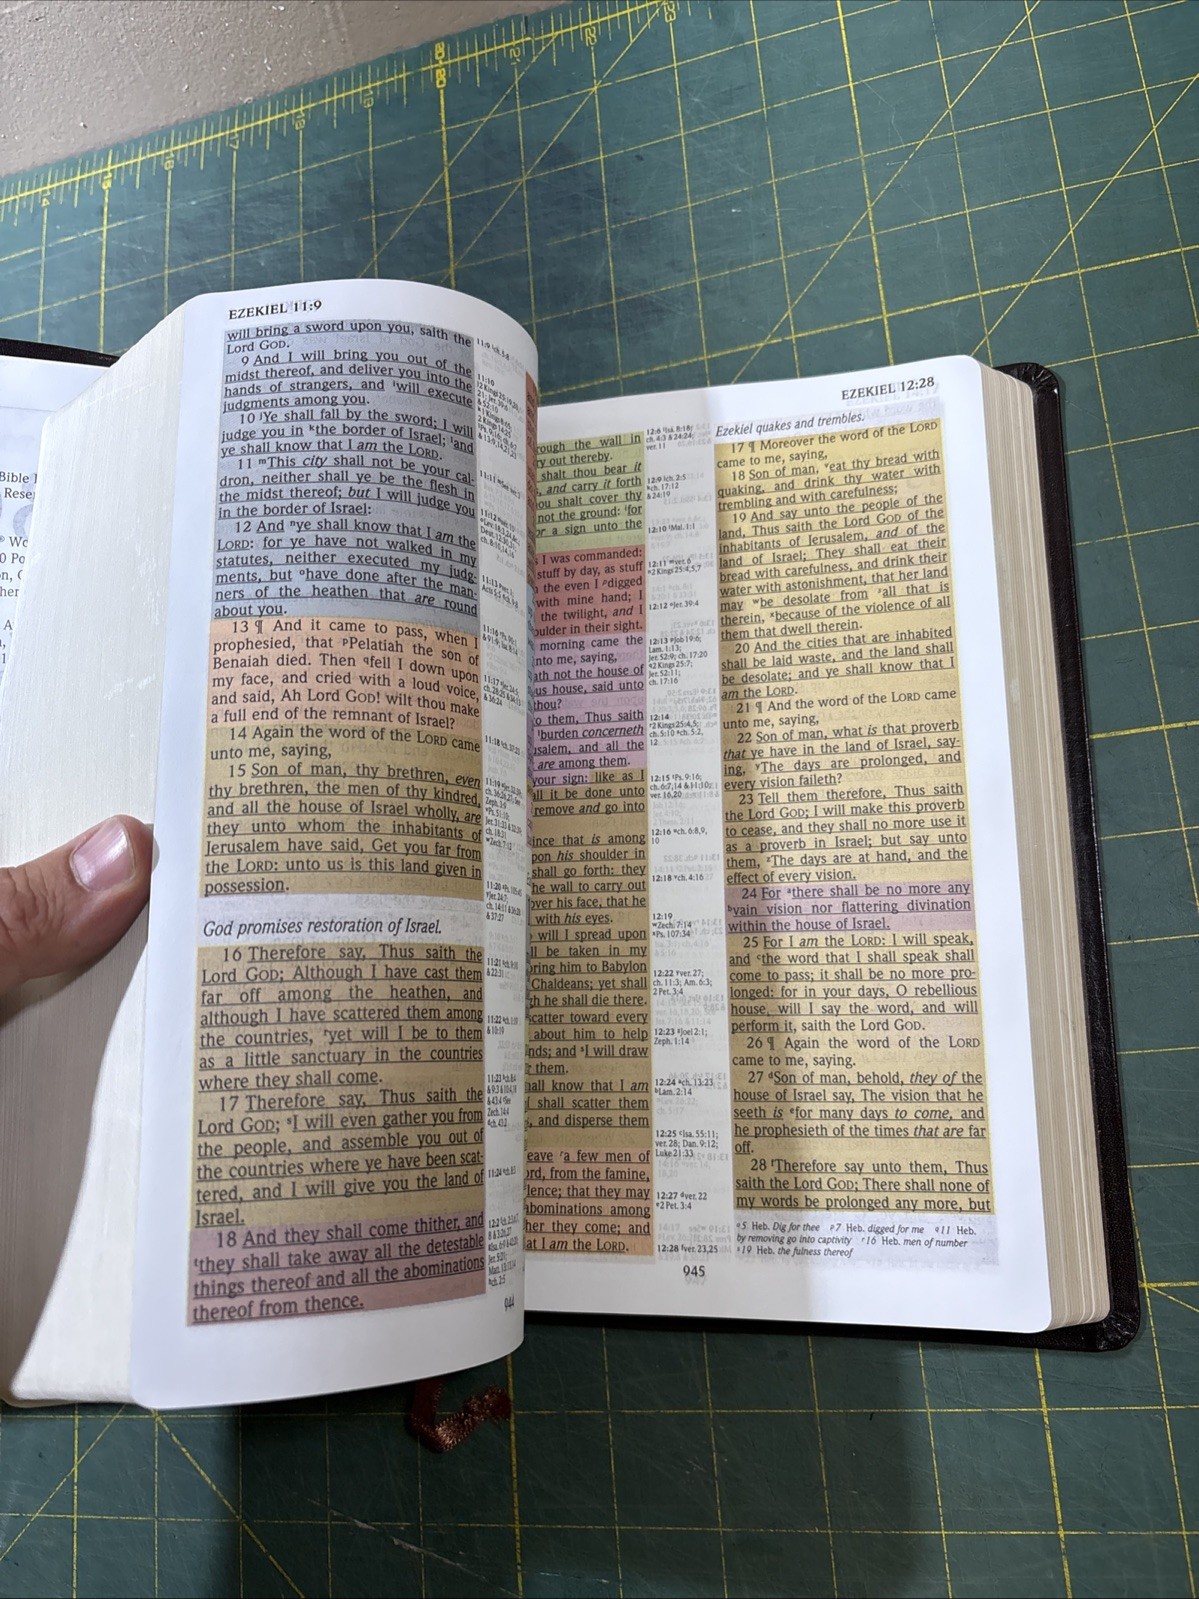 EZEKIEL 11:9
will bring a sword upon you, saith the
Lord GOD.
9 And I will bring you out of the
midst thereof, and deliver you into the
hands of strangers, and ⁱwill execute
judgments among you.
10 ʲYe shall fall by the sword; I will
judge you in ᵏthe border of Israel; ˡand
ye shall know that I am the LORD.
11 ᵐThis city shall not be your cal-
dron, neither shall ye be the flesh in
the midst thereof; but I will judge you
in the border of Israel:
12 And ⁿye shall know that I am the
LORD: for ye have not walked in my
statutes, neither executed my judg-
ments, but ᵒhave done after the man-
ners of the heathen that are round
about you.
13 ¶ And it came to pass, when I
prophesied, that ᵖPelatiah the son of
Benaiah died. Then qfell I down upon
my face, and cried with a loud voice,
and said, Ah Lord GOD! wilt thou make
a full end of the remnant of Israel?
14 Again the word of the LORD came
unto me, saying,
15 Son of man, thy brethren, even
thy brethren, the men of thy kindred,
and all the house of Israel wholly, are
they unto whom the inhabitants of
Jerusalem have said, Get you far from
the LORD: unto us is this land given in
possession.
God promises restoration of Israel.
16 Therefore say, Thus saith the
Lord GOD; Although I have cast them
far off among the heathen, and
although I have scattered them among
the countries, ʳyet will I be to them
as a little sanctuary in the countries
where they shall come.
17 Therefore say, Thus saith the
Lord GOD; ˢI will even gather you from
the people, and assemble you out of
the countries where ye have been scat-
tered, and I will give you the land of
Israel.
18 And they shall come thither, and
ᵗthey shall take away all the detestable
things thereof and all the abominations
thereof from thence.
944
rough the wall in
ry out thereby.
shalt thou bear it
, and carry it forth
ou shalt cover thy
not the ground: ˡfor
or a sign unto the
I was commanded:
stuff by day, as stuff
the even I ᵖdigged
with mine hand; I
the twilight, and I
oulder in their sight.
morning came the
nto me, saying,
ath not the house of
us house, said unto
thou?
o them, Thus saith
ᵗburden concerneth
usalem, and all the
are among them.
your sign: like as I
all it be done unto
remove and go into
ince that is among
pon his shoulder in
shall go forth: they
he wall to carry out
over his face, that he
with his eyes.
will I spread upon
ll be taken in my
bring him to Babylon
Chaldeans; yet shall
gh he shall die there.
scatter toward every
about him to help
nds; and ˢI will draw
r them.
hall know that I am
I shall scatter them
, and disperse them
leave ᶠa few men of
ord, from the famine,
ilence; that they may
abominations among
her they come; and
at I am the LORD.
12:6 ᶦIsa. 8:18;
ch. 4:3 & 24:24;
ver. 11
12:9 ch. 2:5
ch. 17:12
& 24:19
12:10 Mal. 1:1
12:11 ver. 6
2 Kings 25:4,5,7
12:12 Jer. 39:4
12:13 Job 19:6;
Lam. 1:13;
Jer. 52:9; ch. 17:20
2 Kings 25:7;
Jer. 52:11;
ch. 17:16
12:14
2 Kings 25:4,5;
ch. 5:10 ch. 5:2,
12
12:15 Ps. 9:16;
ch. 6:7,14 & 11:10;
ver. 16,20
12:16 ch. 6:8,9,
10
12:18 ch. 4:16
12:19
Zech. 7:14
Ps. 107:34
12:22 ver. 27;
ch. 11:3; Am. 6:3;
2 Pet. 3:4
12:23 Joel 2:1;
Zeph. 1:14
12:24 ch. 13:23
Lam. 2:14
12:25 Isa. 55:11;
ver. 28; Dan. 9:12;
Luke 21:33
12:27 ver. 22
2 Pet. 3:4
12:28 ver. 23,25
945
EZEKIEL 12:28
Ezekiel quakes and trembles.
17 ¶ Moreover the word of the LORD
came to me, saying,
18 Son of man, ᵛeat thy bread with
quaking, and drink thy water with
trembling and with carefulness;
19 And say unto the people of the
land, Thus saith the Lord GOD of the
inhabitants of Jerusalem, and of the
land of Israel; They shall eat their
bread with carefulness, and drink their
water with astonishment, that her land
may ʷbe desolate from ᶻall that is
therein, ˣbecause of the violence of all
them that dwell therein.
20 And the cities that are inhabited
shall be laid waste, and the land shall
be desolate; and ye shall know that I
am the LORD.
21 ¶ And the word of the LORD came
unto me, saying,
22 Son of man, what is that proverb
that ye have in the land of Israel, say-
ing, ʸThe days are prolonged, and
every vision faileth?
23 Tell them therefore, Thus saith
the Lord GOD; I will make this proverb
to cease, and they shall no more use it
as a proverb in Israel; but say unto
them, ᶻThe days are at hand, and the
effect of every vision.
24 For ᵃthere shall be no more any
ᵇvain vision nor flattering divination
within the house of Israel.
25 For I am the LORD: I will speak,
and ᶜthe word that I shall speak shall
come to pass; it shall be no more pro-
longed: for in your days, O rebellious
house, will I say the word, and will
perform it, saith the Lord GOD.
26 ¶ Again the word of the LORD
came to me, saying.
27 ᵈSon of man, behold, they of the
house of Israel say, The vision that he
seeth is ᵉfor many days to come, and
he prophesieth of the times that are far
off.
28 ᶠTherefore say unto them, Thus
saith the Lord GOD; There shall none of
my words be prolonged any more, but
5 Heb. Dig for thee 7 Heb. digged for me 11 Heb.
by removing go into captivity 16 Heb. men of number
19 Heb. the fulness thereof
Bible
Rese
14
15
16
17
18
19
20
21
22
23